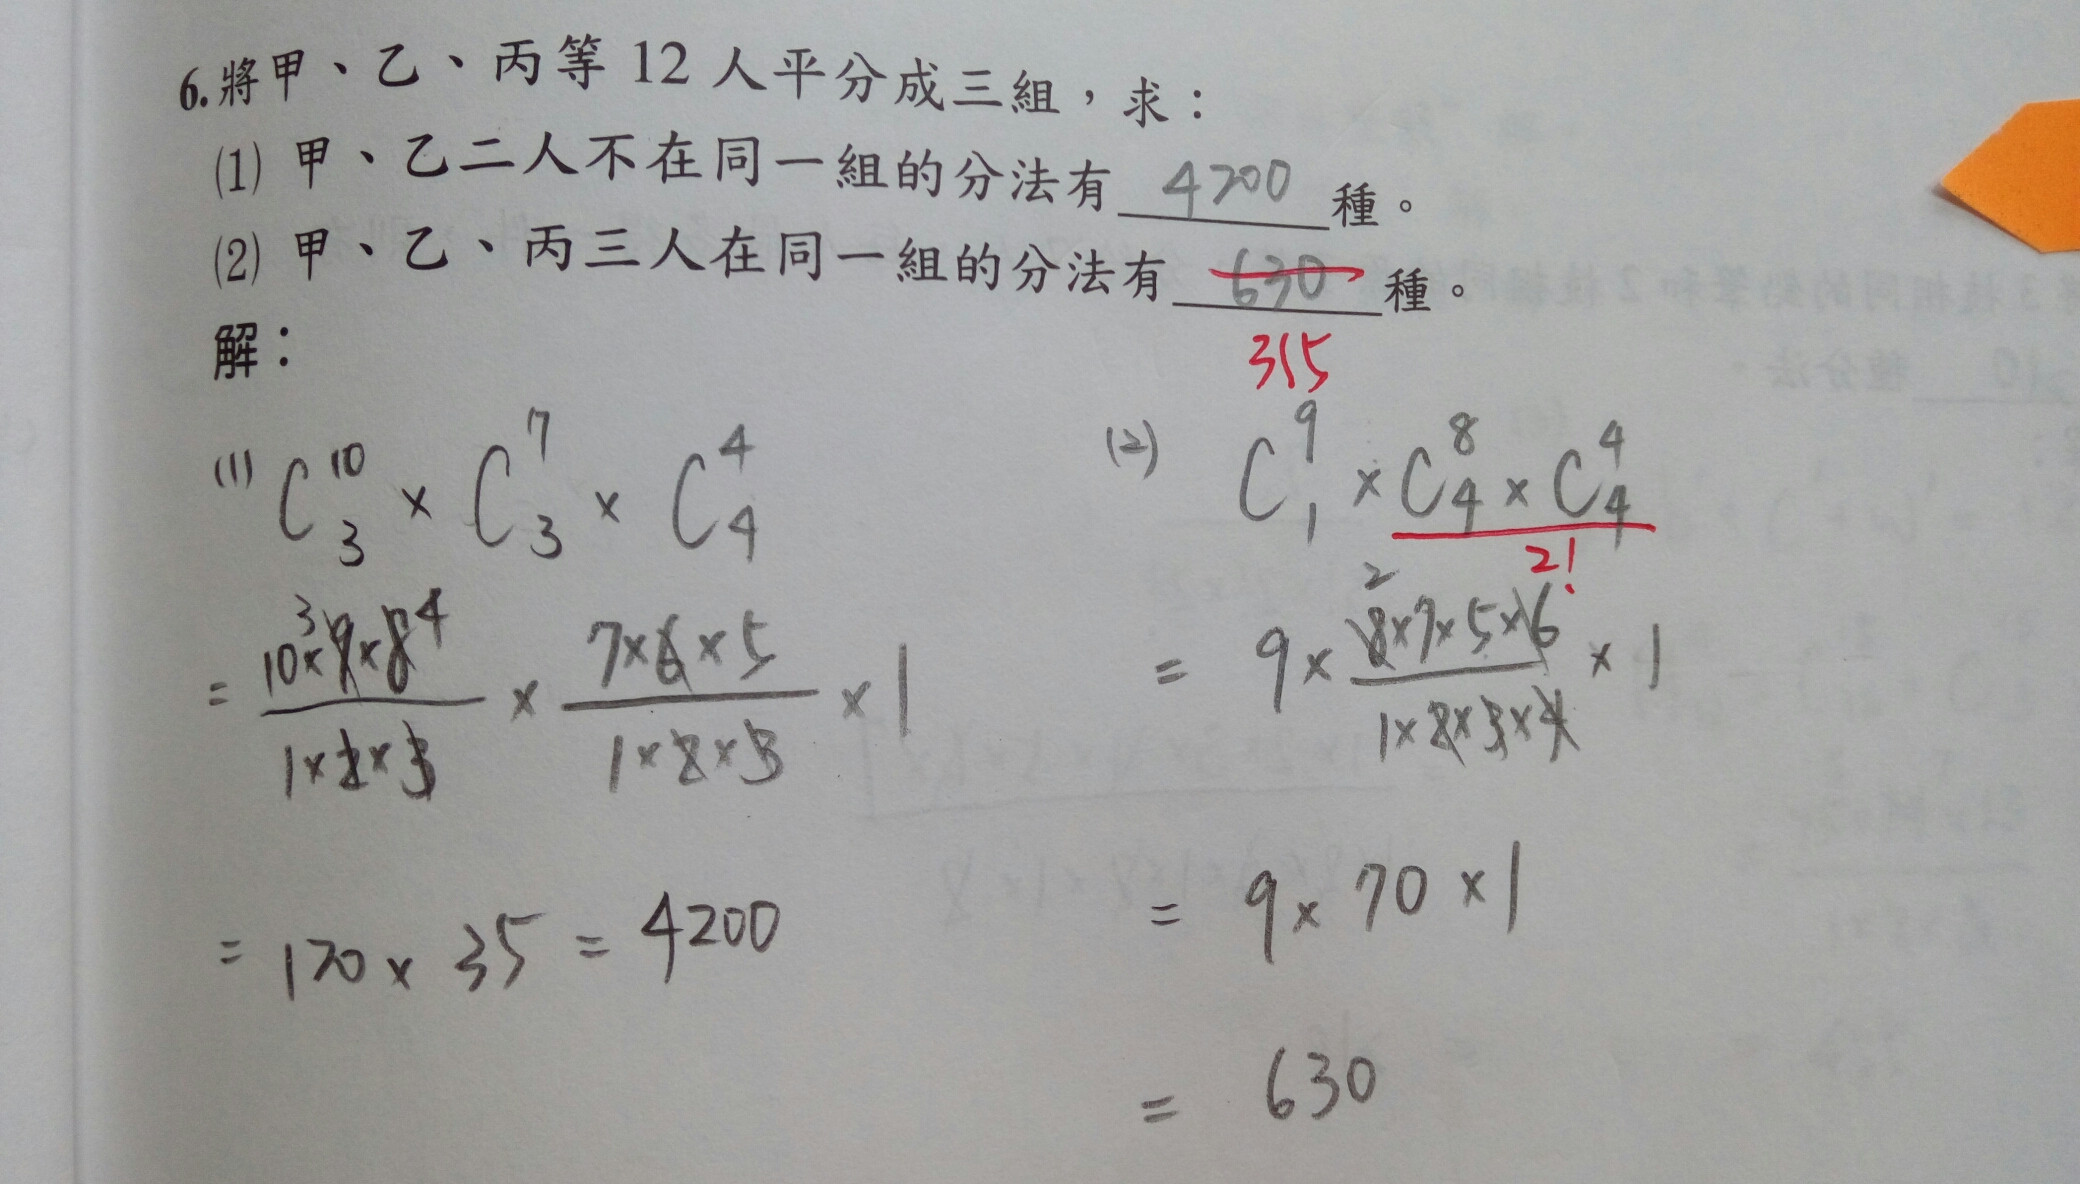 6.將甲、乙、丙等 12 人平分成三組，求：
(1) 甲、乙二人不在同一組的分法有 4200 種。
(2) 甲、乙、丙三人在同一組的分法有 630 種。
315
解：
(1) C^10_3 × C^7_3 × C^4_4
= 10×9×8 / 1×2×3 × 7×6×5 / 1×2×3 × 1
3 4
= 120 × 35 = 4200
(2) C^9_1 × C^8_4 × C^4_4
2!
2
= 9 × 8×7×5×6 / 1×2×3×4 × 1
= 9 × 70 × 1
= 630